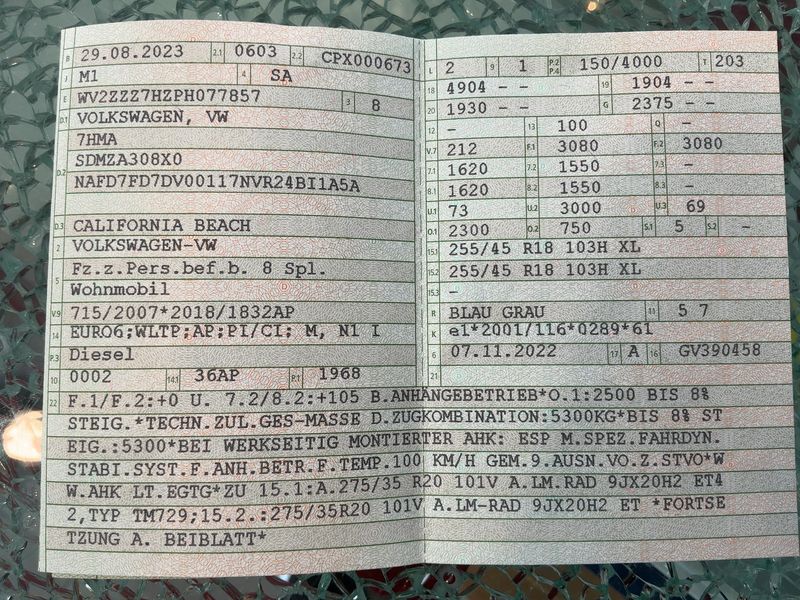 B 29.08.2023 2.1 0603 2.2 CPX000673
J M1 4 SA
E WV2ZZZ7HZPH077857 3 8
D.1 VOLKSWAGEN, VW
7HMA
D.2 SDMZA308X0
NAFD7FD7DV00117NVR24BI1A5A
D.3 CALIFORNIA BEACH
2 VOLKSWAGEN-VW
5 Fz.z.Pers.bef.b. 8 Spl.
Wohnmobil
V.9 715/2007*2018/1832AP
14 EURO6;WLTP;AP;PI/CI; M, N1 I
P.3 Diesel
10 0002 14.1 36AP P.1 1968
L 2 9 1 P.2 P.4 150/4000 T 203
18 4904 - - 19 1904 - -
20 1930 - - G 2375 - -
12 - 13 100 Q -
V.7 212 F.1 3080 F.2 3080
7.1 1620 7.2 1550 7.3 -
8.1 1620 8.2 1550 8.3 -
U.1 73 U.2 3000 U.3 69
O.1 2300 O.2 750 S.1 5 S.2 -
15.1 255/45 R18 103H XL
15.2 255/45 R18 103H XL
15.3 -
R BLAU GRAU 11 5 7
K e1*2001/116*0289*61
6 07.11.2022 17 A 16 GV390458
21
22 F.1/F.2:+0 U. 7.2/8.2:+105 B.ANHÄNGEBETRIEB*O.1:2500 BIS 8%
STEIG.*TECHN.ZUL.GES-MASSE D.ZUGKOMBINATION:5300KG*BIS 8% ST
EIG.:5300*BEI WERKSEITIG MONTIERTER AHK: ESP M.SPEZ.FAHRDYN.
STABI.SYST.F.ANH.BETR.F.TEMP.100 KM/H GEM.9.AUSN.VO.Z.STVO*W
W.AHK LT.EGTG*ZU 15.1:A.275/35 R20 101V A.LM.RAD 9JX20H2 ET4
2,TYP TM729;15.2.:275/35R20 101V A.LM-RAD 9JX20H2 ET *FORTSE
TZUNG A. BEIBLATT*